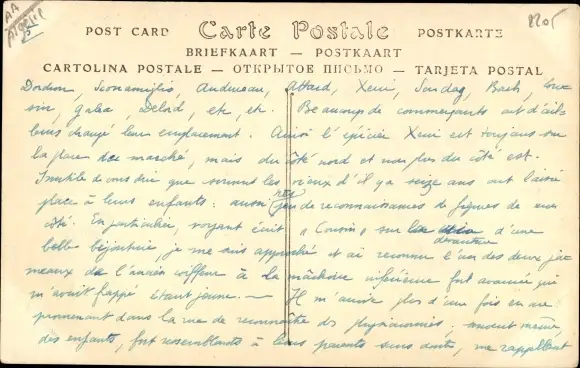 AA
Algérie
5
2205
POST CARD Carte Postale POSTKARTE
BRIEFKAART — POSTKAART
CARTOLINA POSTALE — ОТКРЫТОЕ ПИСЬМО — TARJETA POSTAL
Andureau, Attard, Xeui, Bach,
Galea, Delord, etc, etc. Beaucoup de commerçants ont d'ail-
leurs changé leur emplacement. Ainsi l'épicier Xeui est toujours sur
la place du marché, mais du côté nord et non plus du côté est.
Inutile de vous dire que souvent les vieux d'il y a seize ans ont laissé
place à leurs enfants : aussi peu de reconnaissances de figures de mon
côté. En particulier, voyant écrit "Cousin" sur la devanture d'une
belle bijouterie, je me suis approché et ai reconnu l'un des deux ju-
meaux de l'ancien coiffeur à la mâchoire inférieure fort avancée qui
m'avait frappé étant jeune. — Il m'arrive plus d'une fois en me
promenant dans la rue de reconnaître des physionomies ; souvent même,
des enfants, fort ressemblants à leurs parents sans doute, me rappellent